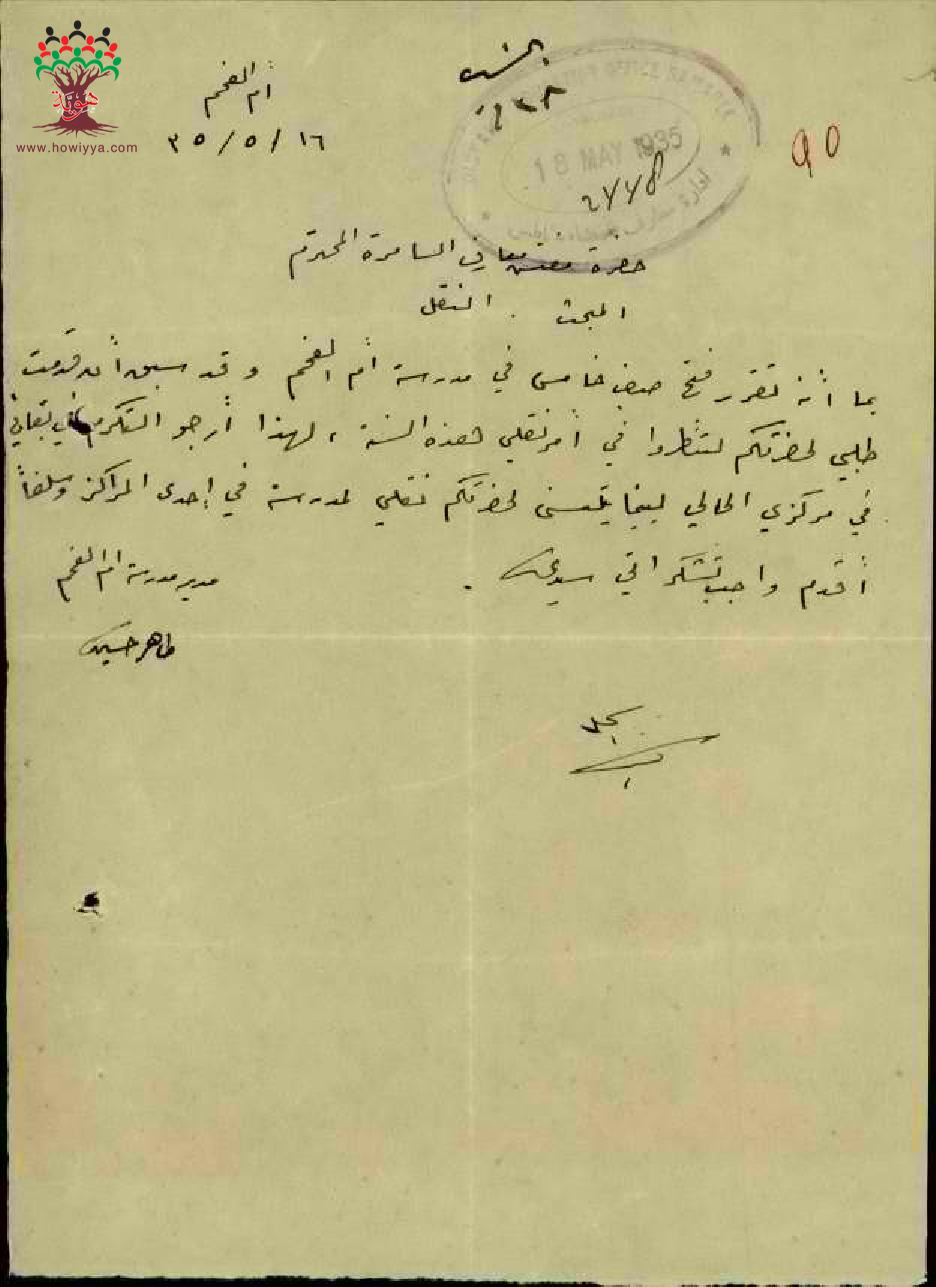 هوية
www.howiyya.com
أم الفحم
١٦ / ٥ / ٣٥
OFFICE SAMARIA
18 MAY 1935
ادارة معارف
90
حضرة مفتش معارف السامرة المحترم
المبحث . النقل
بما أنه تقرر فتح صف خامس في مدرسة أم الفحم وقد سبق أن قدمت
طلبي لحضرتكم لتنظروا في أمر نقلي هذه السنة ، لهذا أرجو التكرم في بقائي
في مركزي الحالي لبينما يتسنى لحضرتكم نقلي لمدرسة في إحدى المراكز وسلفاً
أقدم واجب تشكراتي سيدي .
مدير مدرسة ام الفحم
طاهر حسين